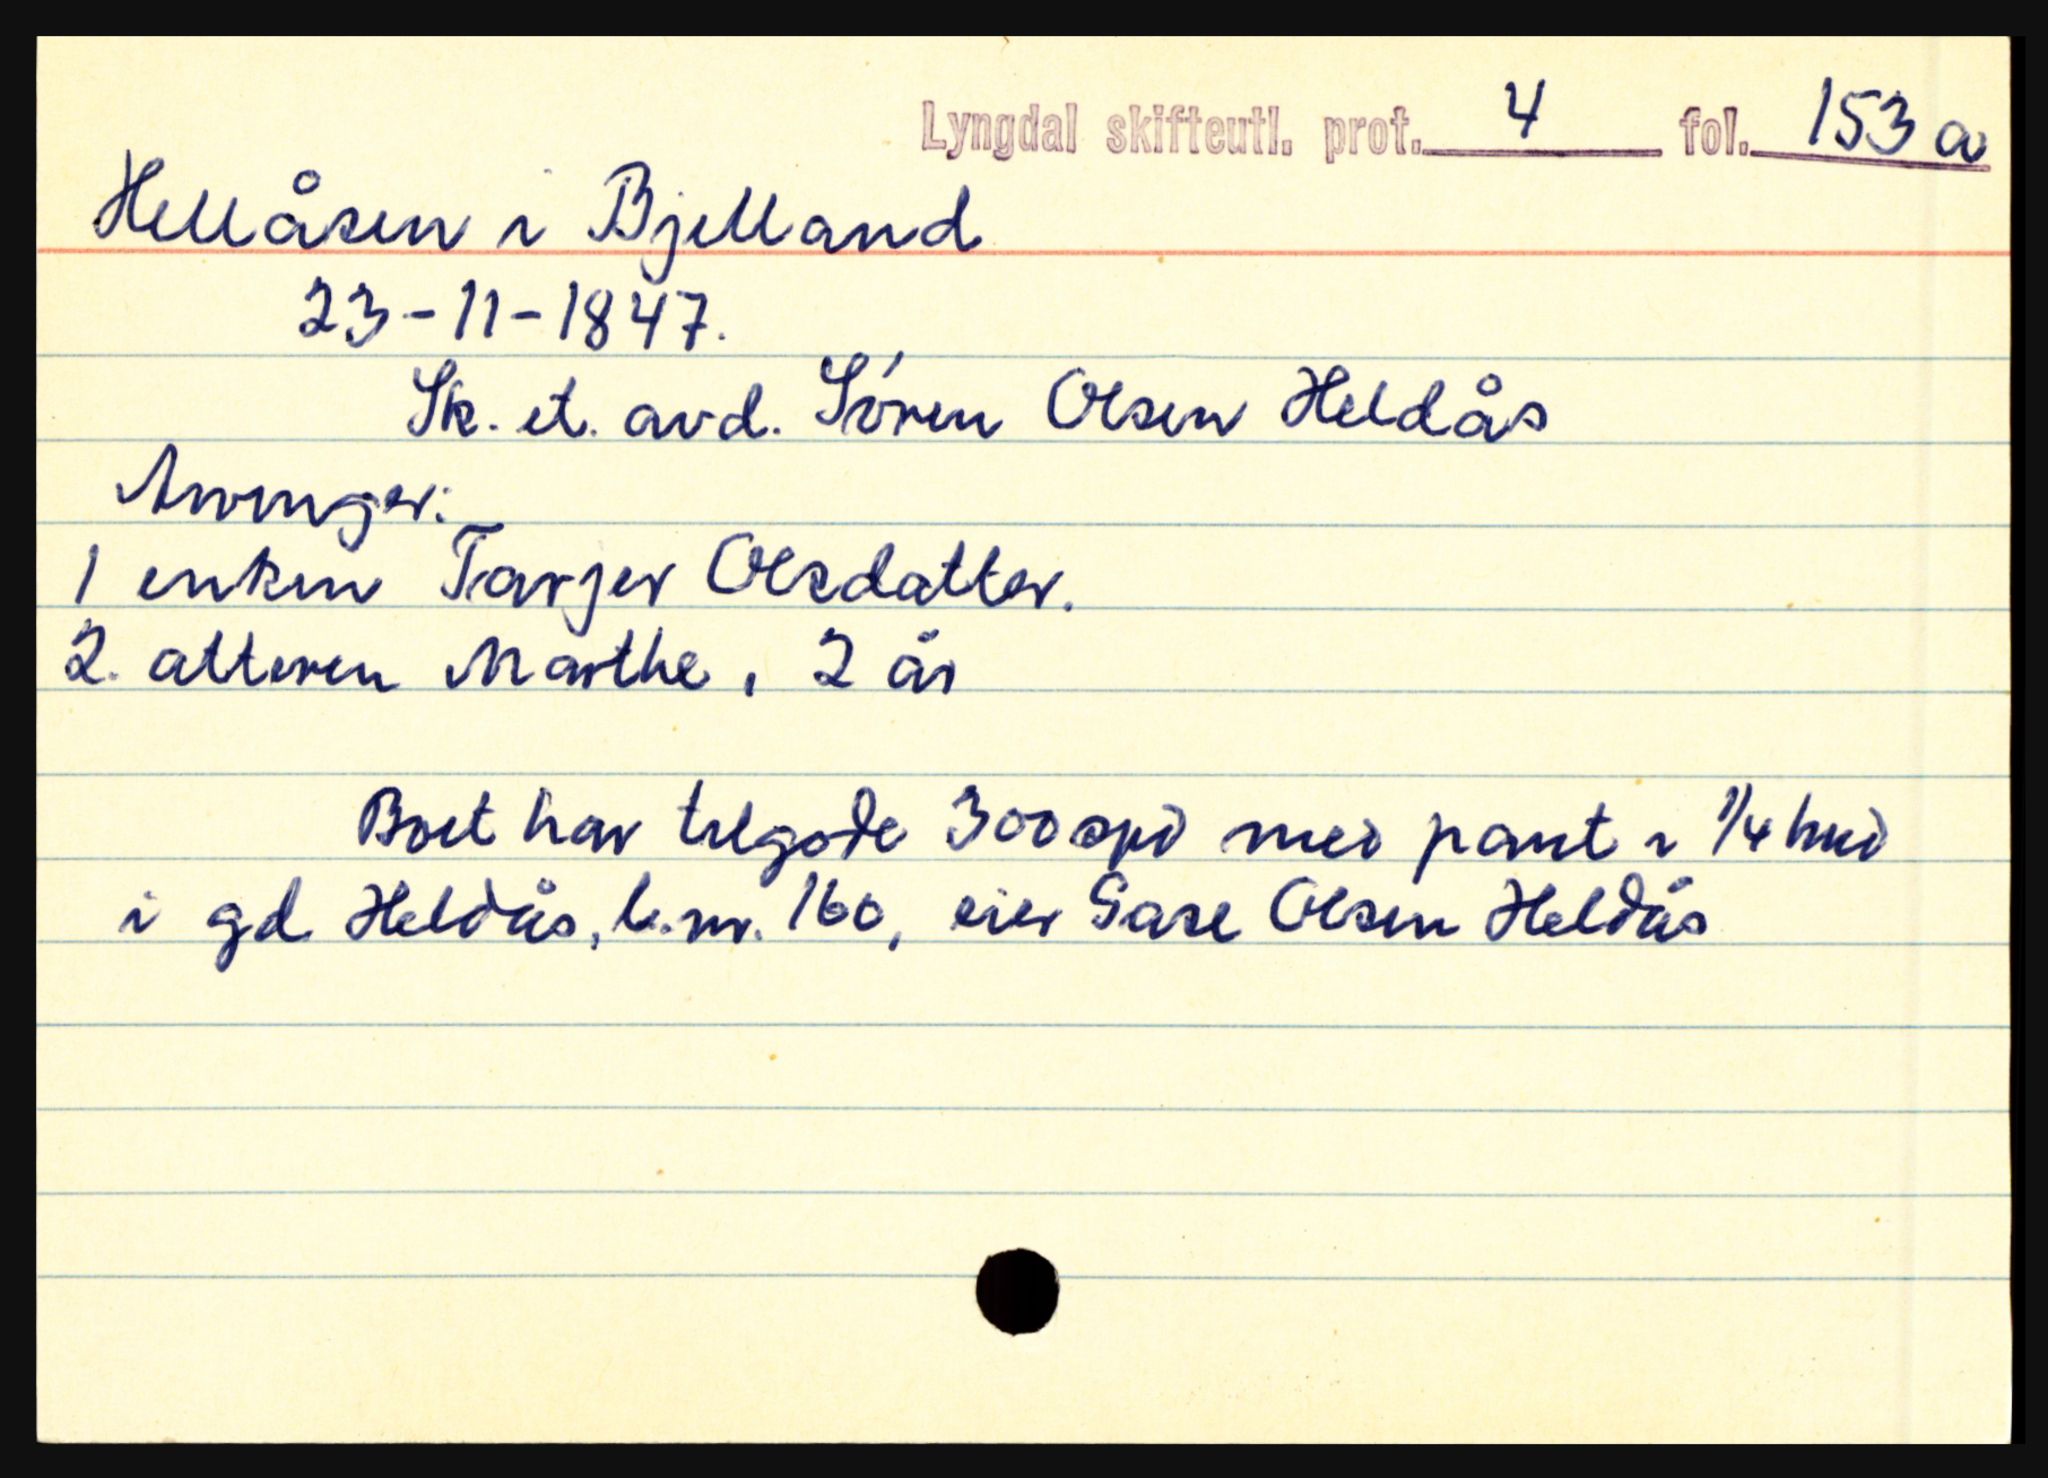 Lyngdal skifteutl. prot. 4 fol. 153 a
Hellåsen i Bjelland
23-11-1847.
Sk. et. avd. Søren Olsen Heldås
Arvinger:
1 enken Tarjer Olsdatter.
2. atteren Marthe, 2 år
Boet har tilgode 300 spd med pant i 1/4 hud
i gd. Heldås, l.nr. 160, eier Olsen Heldås